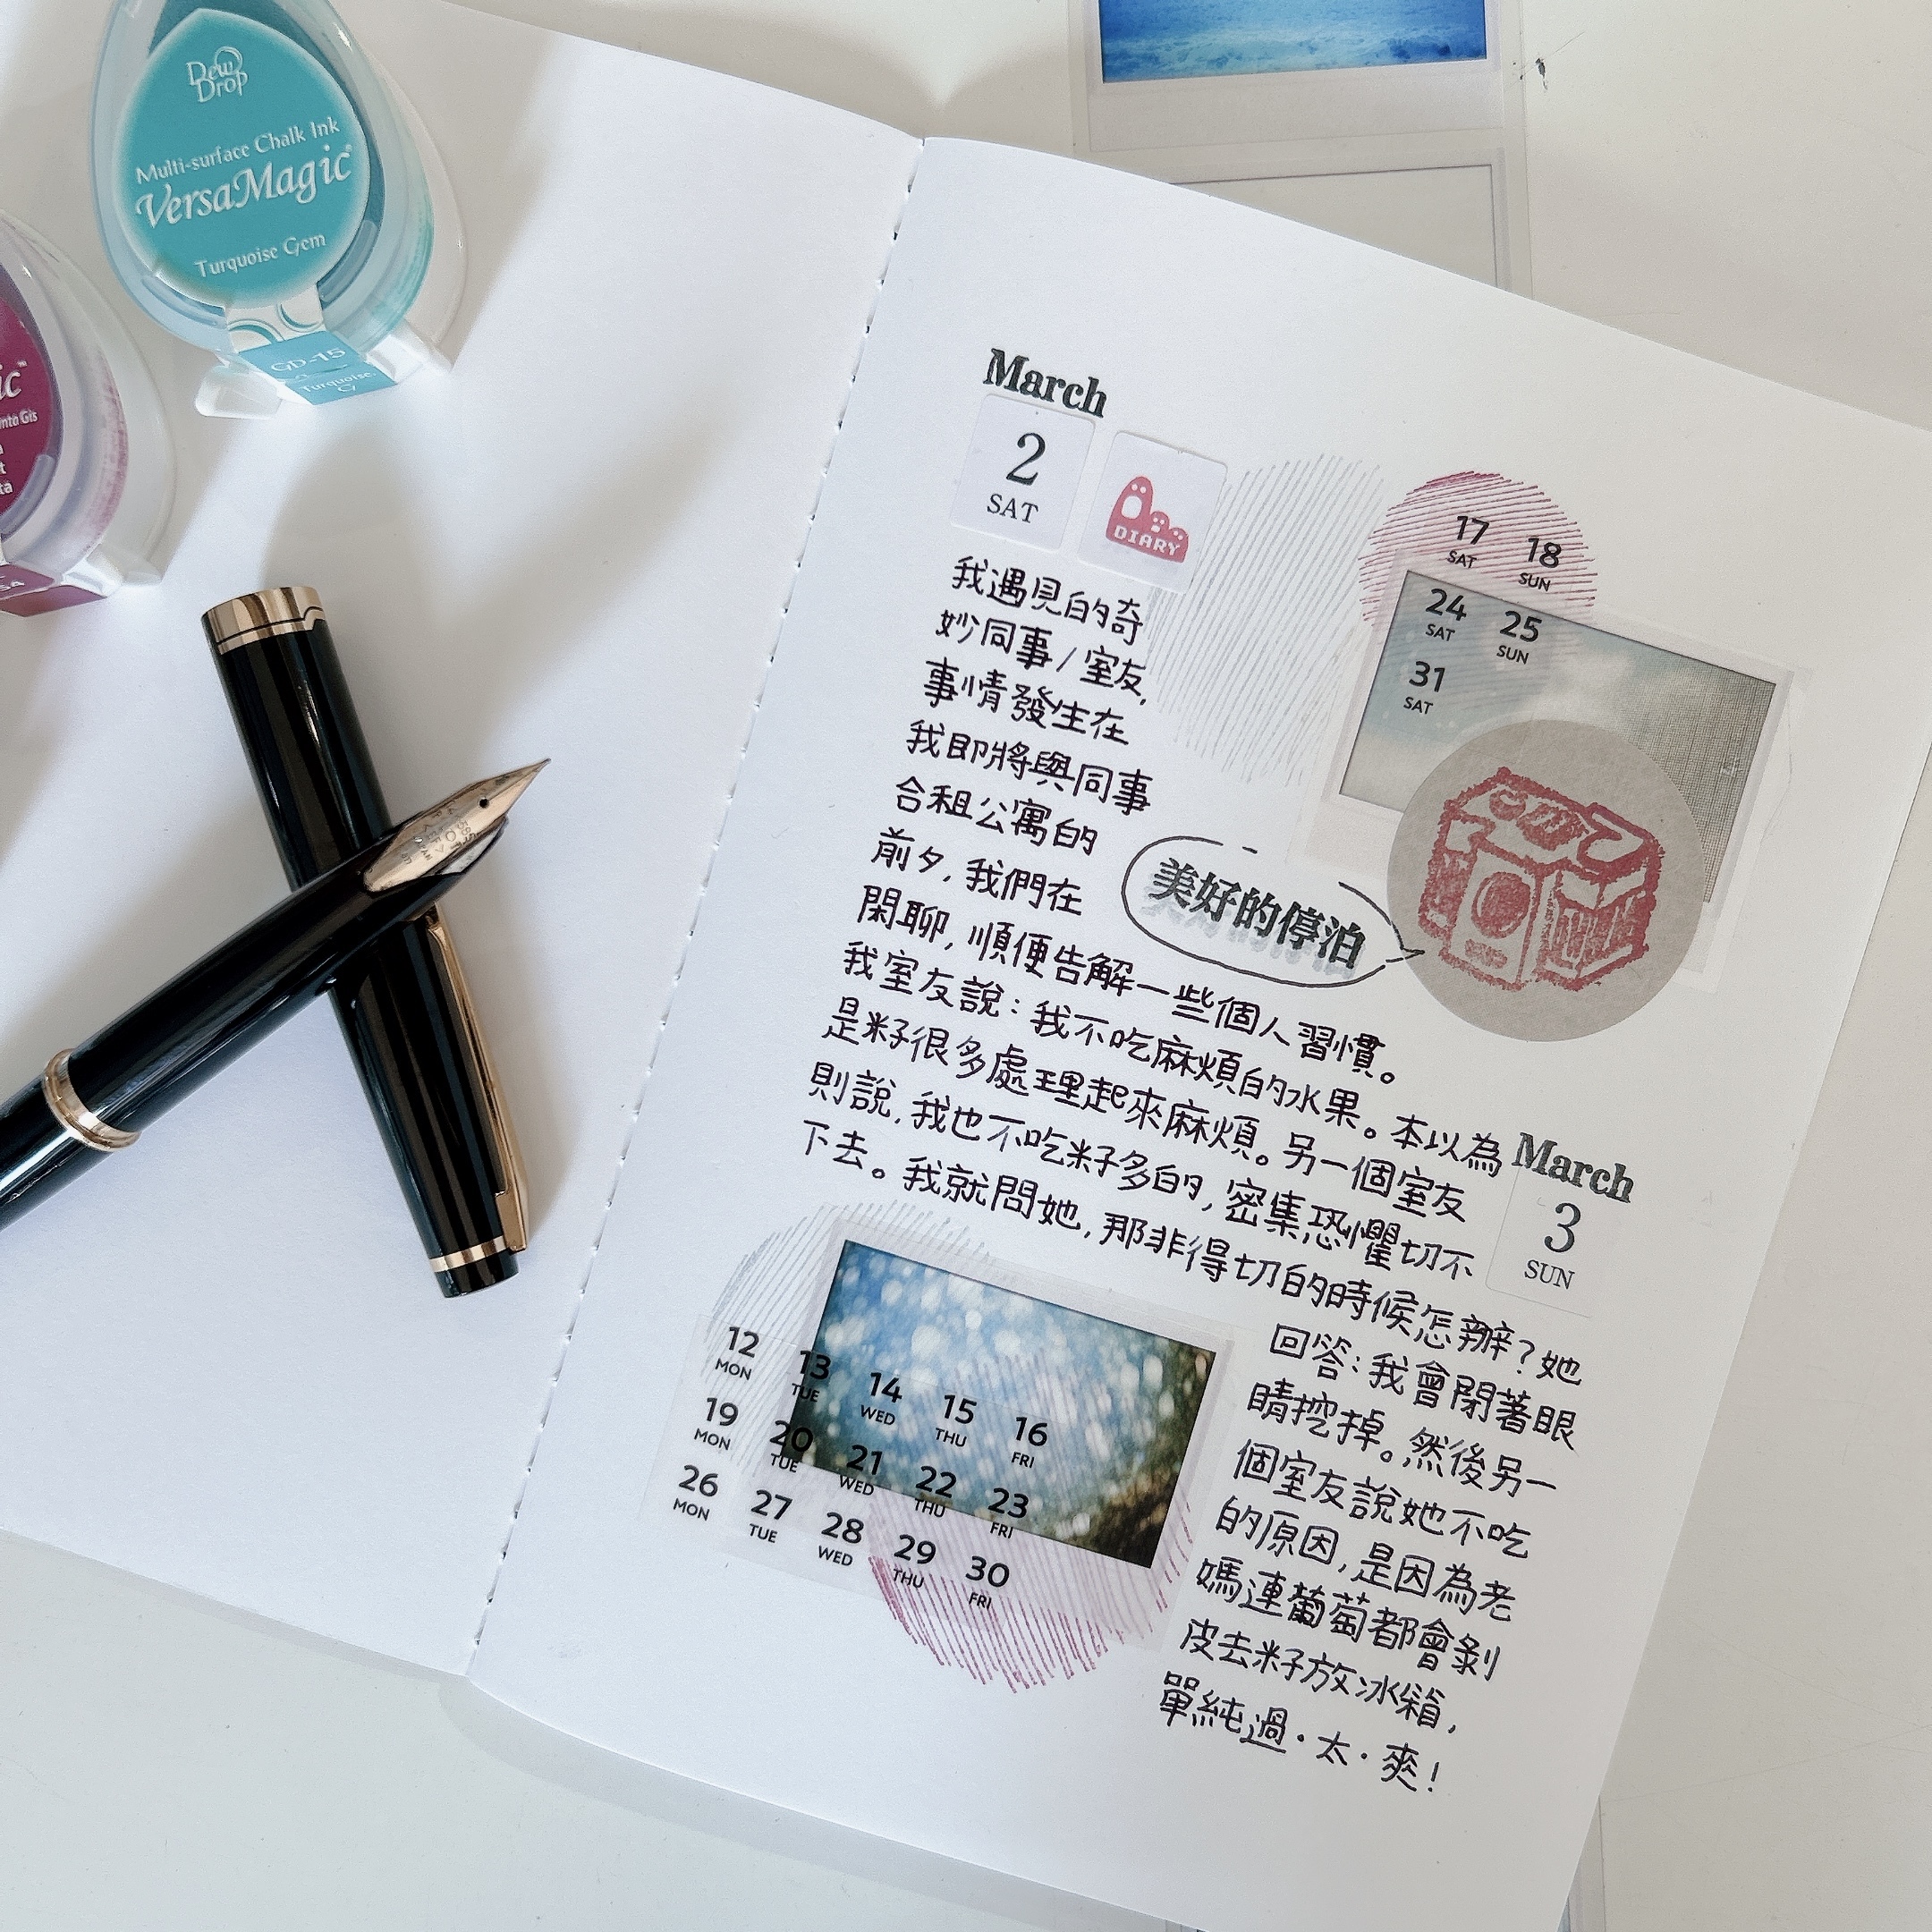 Dew
Drop
Multi-surface Chalk Ink
VersaMagic
Turquoise Gem
GD-15
Turquoise
March
2
SAT
DIARY
17 18
SAT SUN
24 25
SAT SUN
31
SAT
我遇見的奇
妙同事/室友,
事情發生在
我即將與同事
合租公寓的
前夕,我們在
閑聊,順便告解一些個人習慣。
我室友說:我不吃麻煩的水果。本以為
是籽很多處理起來麻煩。另一個室友
則說,我也不吃籽多的,密集恐懼切不
下去。我就問她,那非得切的時候怎辦?她
美好的停泊
March
3
SUN
回答:我會閉著眼
睛挖掉。然後另一
個室友說她不吃
的原因,是因為老
媽連葡萄都會剝
皮去籽放冰箱,
單純過·太·爽!
12 13 14 15 16
MON TUE WED THU FRI
19 20 21 22 23
MON TUE WED THU FRI
26 27 28 29 30
MON TUE WED THU FRI